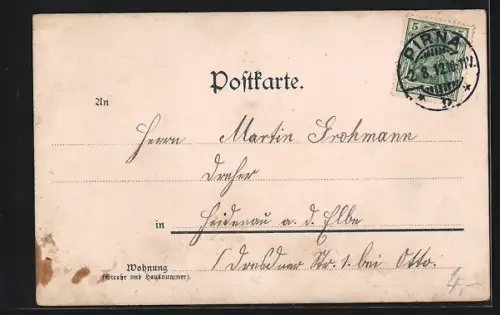 5
PIRNA
7.8.12.10-11V.
* b *
Postkarte.
An
Herrn Martin Grohmann
Dreher
in Heidenau a. d. Elbe
Wohnung Dresdner Str. 1. bei Otto.
(Straße und Hausnummer).
4,-